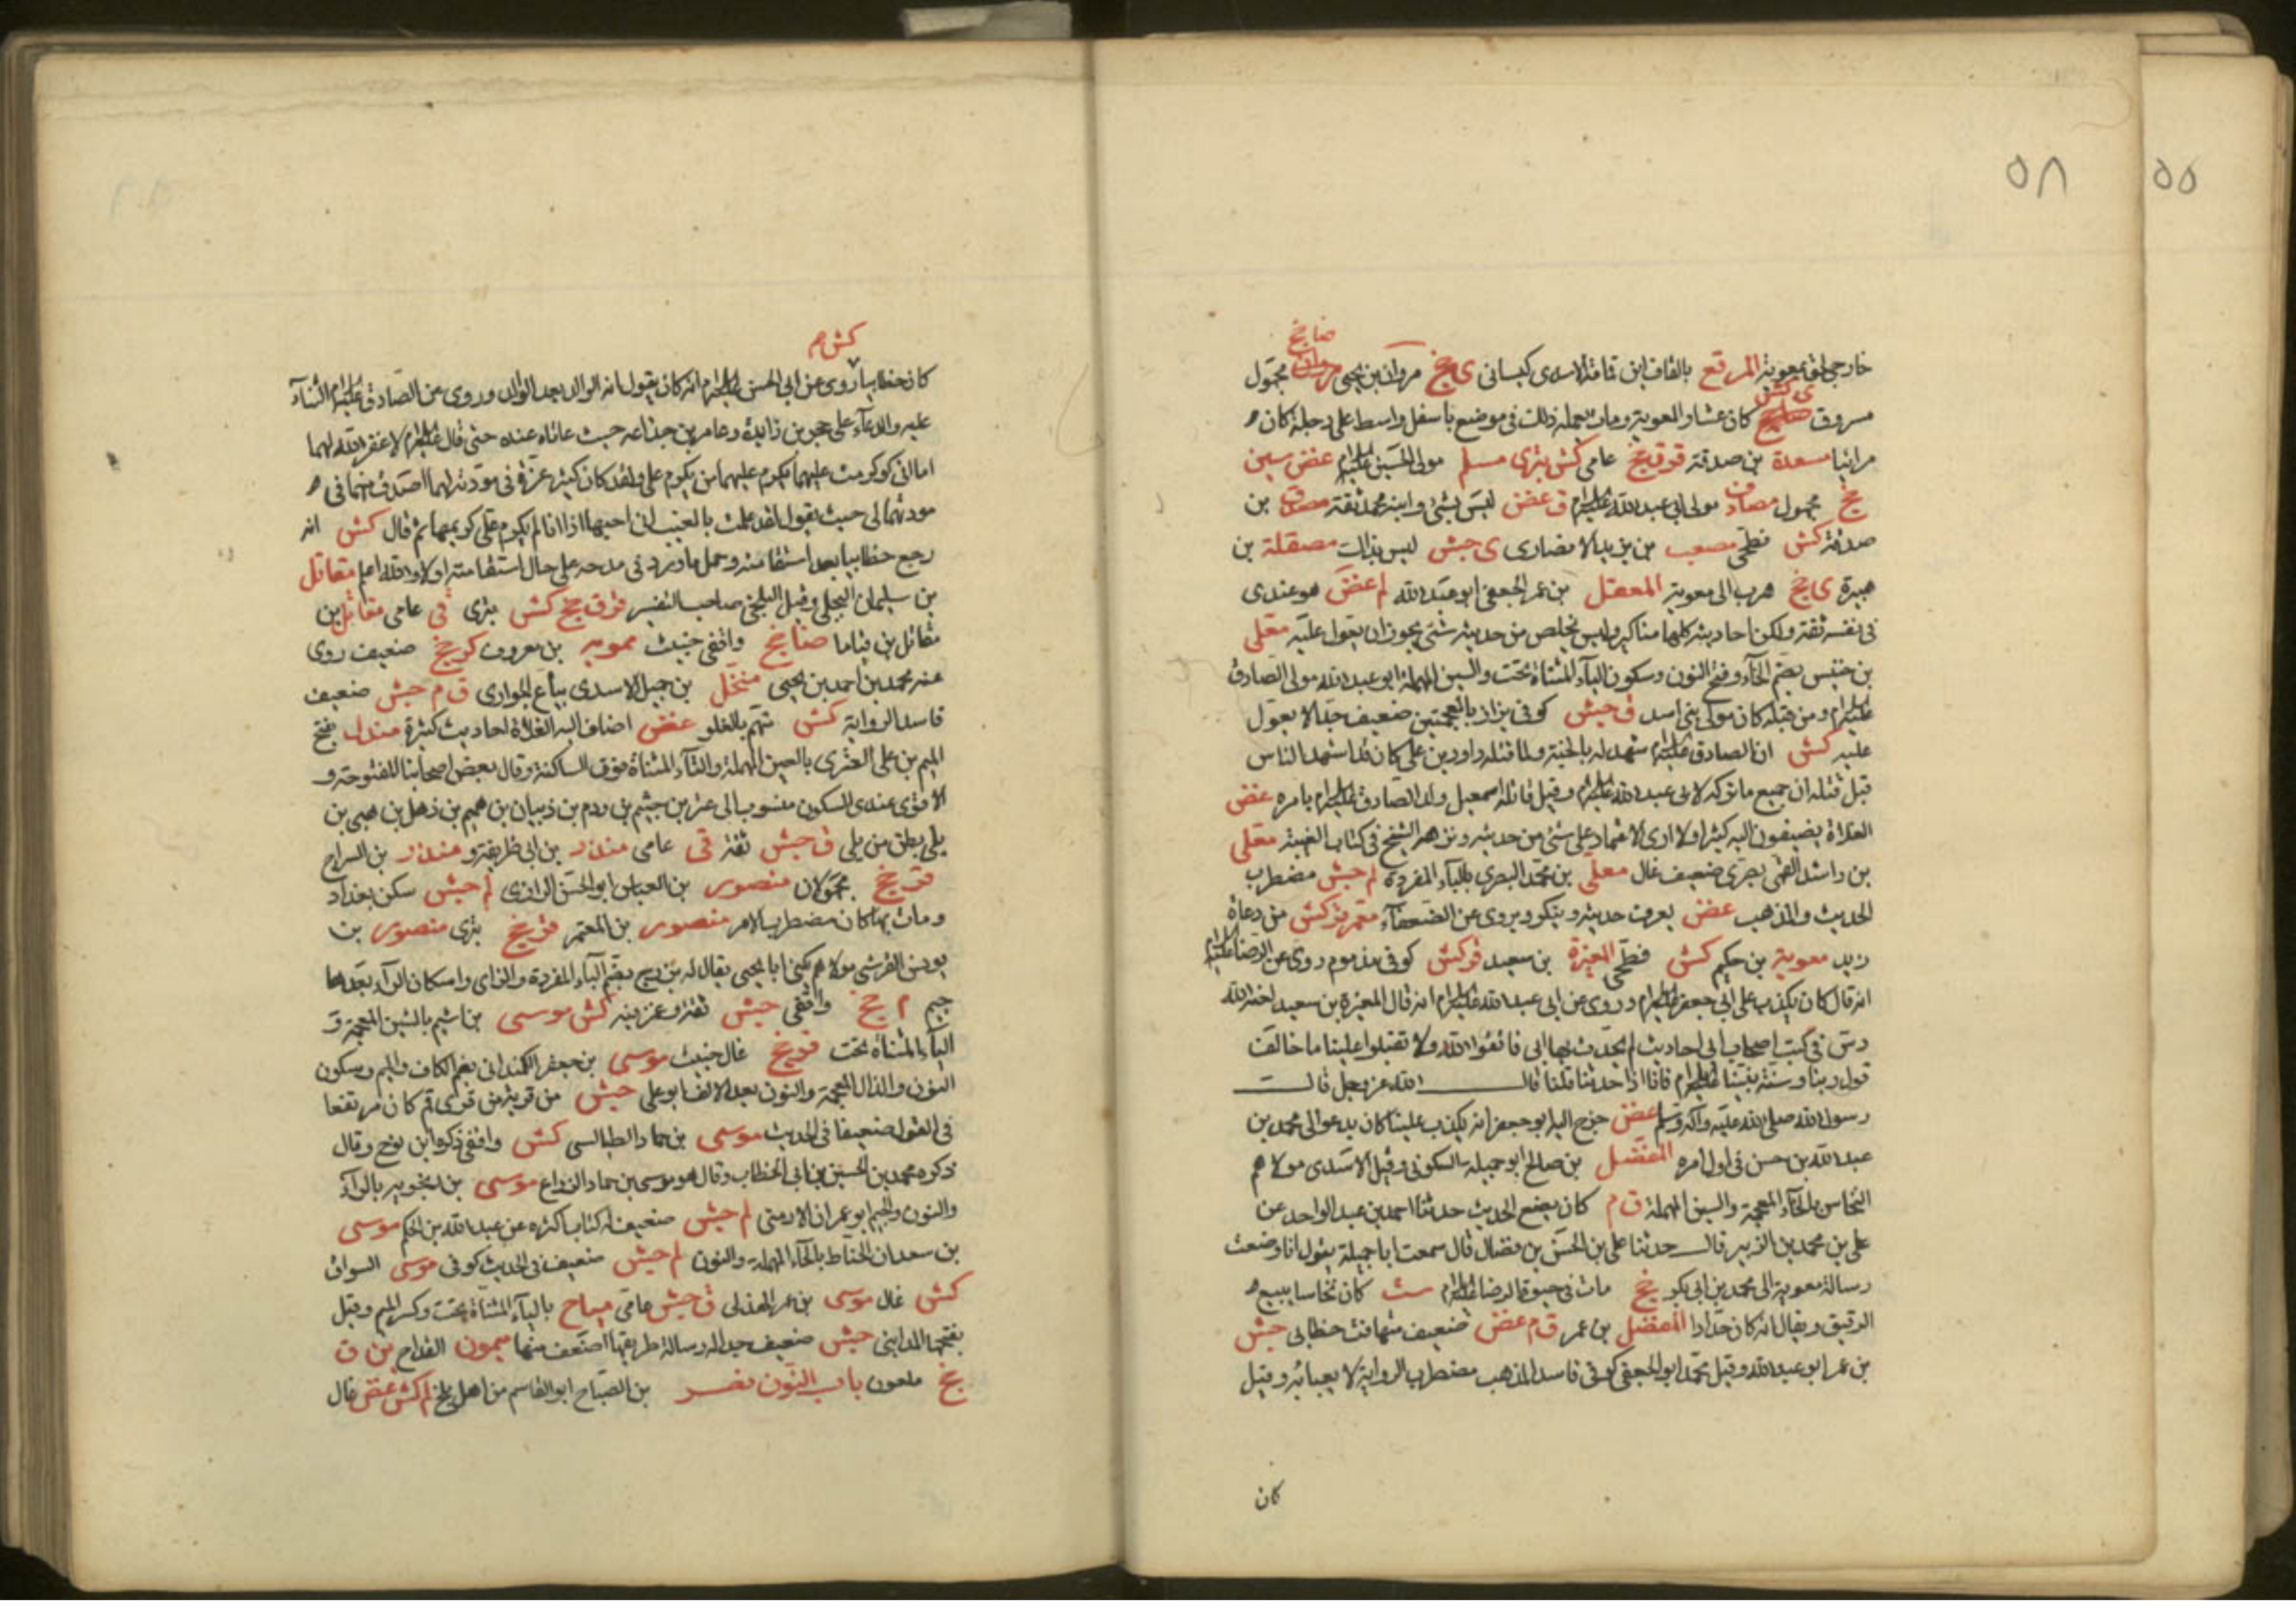 ٥٨
٥٥
خارجي لحق بمعوية المرقع بالقاف ابن قمامة الاسدي كيساني ى جخ مروان بن يحيى ضا جخ مجهول
مسروق ى كش كان عشارا لمعوية ومات بعمله ذلك في موضع باسفل واسط على دجلة كان
مرائيا مسعدة بن صدقة قر ق جخ عامي كش بتري مسلم مولى الحسين عليه السلام غض سين
جخ مجهول مصادف مولى ابي عبدالله عليه السلام ق غض ليس بشئ وابنه محمد ثقة مصدق بن
صدقة كش فطحي مصعب بن يزيد الانصاري ى جش ليس بذاك مصقلة بن
هبيرة ى جخ هرب الى معوية المفضل بن عمر الجعفي ابو عبد الله لم غض هو عندي
في نفسه ثقة ولكن احاديثه كلها مناكير وليس يخلص من حديثه شئ يجوز ان يعول عليه معلى
بن خنيس بضم الخاء وفتح النون وسكون الياء المثناة تحت والسين المهملة ابو عبدالله مولى الصادق
عليه السلام ومن قبله كان مولى بني اسد ق جش كوفي بزاز بالمعجمتين ضعيف جدا لا يعول
عليه كش ان الصادق عليه السلام شهد له بالجنة ولما قتله داود بن علي كان قد اشهد الناس
قبل قتله ان جميع ما تركه لابي عبدالله عليه السلام وقيل قاتله اسمعيل ولد الصادق عليه السلام بامره غض
الغلاة يضيفون اليه كثيرا ولا ارى الاعتماد على شئ من حديثه ونزهه الشيخ في كتاب الغيبة معلى
بن راشد القمي بصري ضعيف غال معلى بن محمد البصري بالباء المفردة لم جش مضطرب
الحديث والمذهب غض يعرف حديثه وينكر ويروي عن الضعفاء معمر قر كش من دعاة
زيد معوية بن حكيم كش فطحي المغيرة بن سعيد قر كش كوفي مذموم روى عن الرضا عليه السلام
انه قال كان يكذب على ابي جعفر عليه السلام وروى عن ابي عبدالله عليه السلام انه قال المغيرة بن سعيد لعنه الله
دس في كتب اصحاب ابي احاديث لم يحدث بها ابي فاتقوا الله ولا تقبلوا علينا ما خالف
قول ربنا وسنة نبينا عليه السلام فانا اذا حدثنا قلنا قال الله عز وجل قال
رسول الله صلى الله عليه وآله وسلم غض خرج اليه ابو جعفر انه يكذب علينا كان يدعو الى محمد بن
عبدالله بن حسن في اول امره المفضل بن صالح ابو جميلة السكوني وقيل الاسدي مولاهم
النخاس بالخاء المعجمة والسين المهملة ق م كان يضع الحديث حدثنا احمد بن عبدالواحد عن
علي بن محمد بن الزبير قال حدثنا علي بن الحسن بن فضال قال سمعت ابا جميلة يقول انا وضعت
رسالة معوية الى محمد بن ابي بكر جخ مات في حيوة الرضا عليه السلام ست كان نخاسا يبيع
الرقيق ويقال انه كان حدادا المفضل بن عمر ق م غض ضعيف متهافت خطابي جش
بن عمر ابو عبدالله وقيل محمد ابو الجعفي كوفي فاسد المذهب مضطرب الرواية لا يعبأ به وقيل
كان
كش م
كان خطابيا روى عن ابي الحسن عليه السلام انه كان يقول انه الوالد بعد الوالد وروى عن الصادق عليه السلام الثناء
عليه والدعاء على حجر بن زايدة وعامر بن جذاعه حيث عاتاه عنده حتى قال عليه السلام لا غفر الله لهما
اما اني لو كرمت عليهما لكرم عليهما من يكرم علي ولقد كان كثير عزة في مودته لها اصدق منهما في
مودتهما لي حيث يقول لقد علمت بالغيب اني احبها اذا انا لم يكرم علي كريمها ثم قال كش انه
رجع خطابيا بعد استقامته وحمل ما ورد في مدحه على حال استقامته اولا والله اعلم مقاتل
بن سليمان البجلي وقيل البلخي صاحب التفسير قر ق جخ كش بتري قي عامي مقاتل بن
مقاتل بن قياما ضا جخ واقفي خبيث ممويه بن معروف كر جخ ضعيف روى
عنه محمد بن احمد بن يحيى منخل بن جميل الاسدي بياع الجواري ق م جش ضعيف
فاسد الرواية كش متهم بالغلو غض اضاف اليه الغلاة احاديث كثيرة مندل بفتح
الميم بن علي العتري بالعين المهملة والتاء المثناة فوق الساكنة وقال بعض اصحابنا المفتوحة و
الاقوى عندي السكون منسوب الى عتر بن جشم بن ودم بن ذبيان بن هميم بن ذهل بن هبي بن
بلي بطن من بلي ق جش ثقة قي عامي منذر بن ابي طريفة ومنذر بن السراج
قر جخ مجهولان منصور بن العباس ابو الحسن الرازي لم جش سكن بغداد
ومات بها كان مضطرب الامر منصور بن المعتمر قر جخ بتري منصور بن
يونس القرشي مولاهم يكنى ابا يحيى يقال له بزرج بضم الباء المفردة والزاي واسكان الراء بعدها
جيم م جخ واقفي جش ثقة وعن فيه كش موسى بن اشيم بالشين المعجمة و
الياء المثناة تحت قر جخ غال خبيث موسى بن جعفر الكمنداني بضم الكاف والميم وسكون
النون والذال المعجمة والنون بعد الالف ابو علي جش من قرية من قرى قم كان مرتفعا
في القول ضعيفا في الحديث موسى بن حماد الطيالسي كش واقفي ذكره ابن نوح وقال
ذكره محمد بن الحسين بن ابي الخطاب وقال هو موسى بن حماد الذراع موسى بن رنجويه بالراء
والنون والجيم ابو عمران الارمني لم جش ضعيف له كتاب اكثره عن عبدالله بن الحكم موسى
بن سعدان الحناط بالحاء المهملة والنون لم جش ضعيف في الحديث كوفي موسى السواق
كش غال موسى بن عمر الهذلي ق جش عامي مياح بالياء المثناة تحت وكسر الميم وقيل
بفتحها المدايني جش ضعيف جدا له رسالة طريقها اضعف منها ميمون القداح ين ق
جخ ملعون باب النون نصر بن الصباح ابو القاسم من اهل بلخ لم كش غض غال